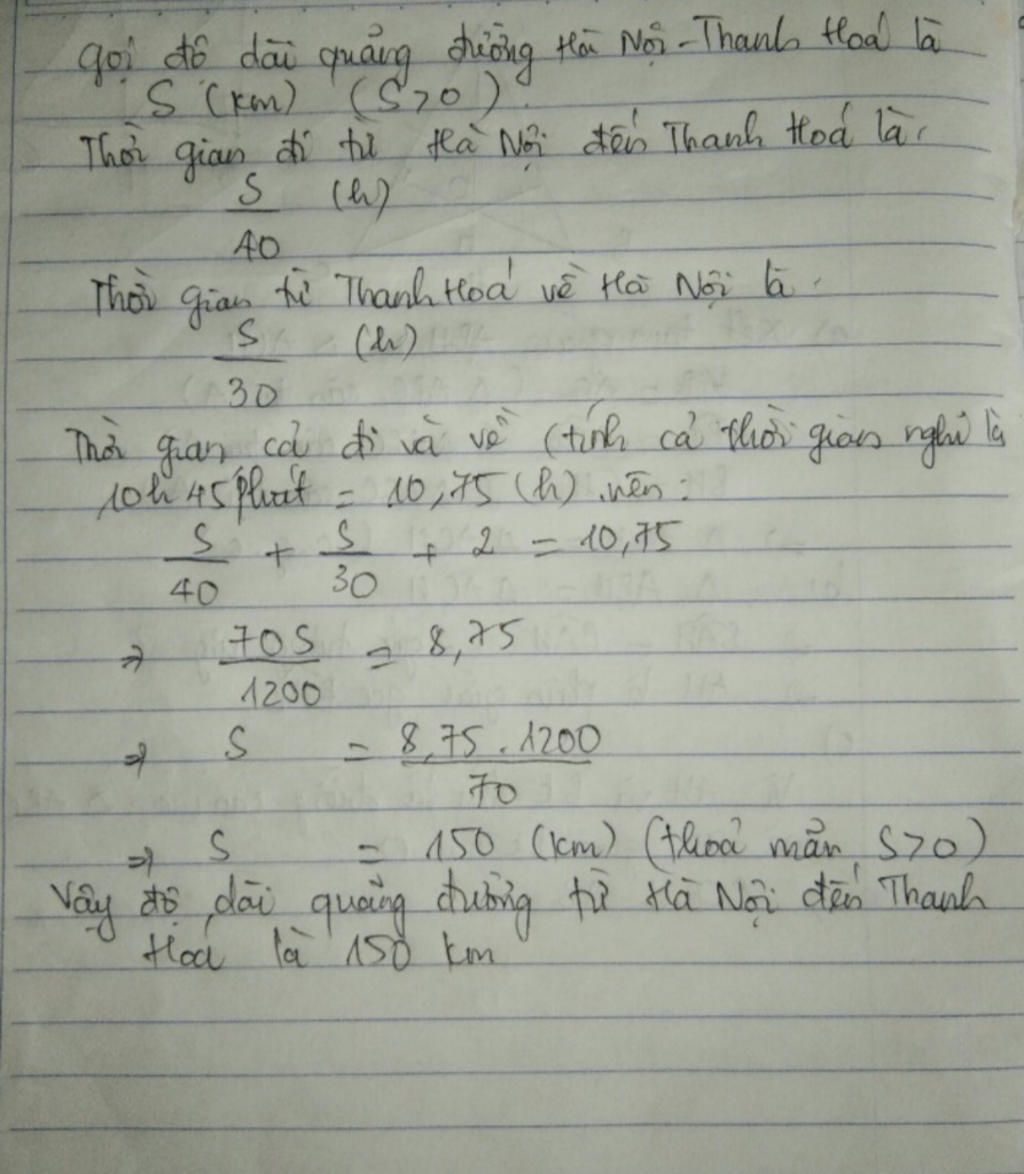 Gọi độ dài quảng đường Hà Nội - Thanh Hoá là
S (km) (S>0).
Thời gian đi từ Hà Nội đến Thanh Hoá là:
S/40 (h)
Thời gian từ Thanh Hoá về Hà Nội là:
S/30 (h)
Thời gian cả đi và về (tính cả thời gian nghỉ là
10h 45 phút = 10,75 (h) nên:
S/40 + S/30 + 2 = 10,75
⇒ 70S/1200 = 8,75
⇒ S = 8,75.1200/70
⇒ S = 150 (km) (thoả mãn S>0)
Vậy độ dài quảng đường từ Hà Nội đến Thanh
Hoá là 150 km